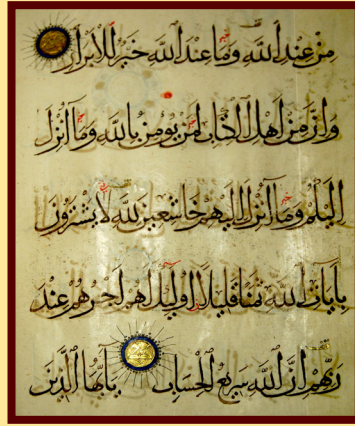 مِنْ عِنْدِ اللَّهِ وَمَا عِنْدَ اللَّهِ خَيْرٌ لِلْأَبْرَارِ
وَإِنَّ مِنْ أَهْلِ الْكِتَابِ لَمَنْ يُؤْمِنُ بِاللَّهِ وَمَا أُنْزِلَ
إِلَيْكُمْ وَمَا أُنْزِلَ إِلَيْهِمْ خَاشِعِينَ لِلَّهِ لَا يَشْتَرُونَ
بِآيَاتِ اللَّهِ ثَمَنًا قَلِيلًا أُولَئِكَ لَهُمْ أَجْرُهُمْ عِنْدَ
رَبِّهِمْ إِنَّ اللَّهَ سَرِيعُ الْحِسَابِ يَا أَيُّهَا الَّذِينَ